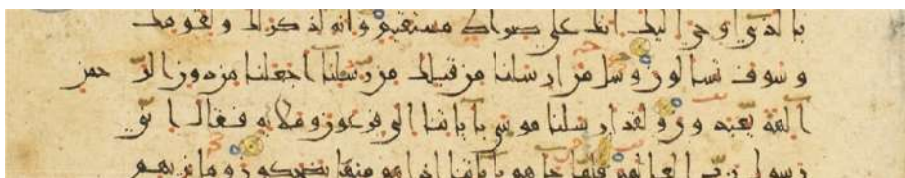 بالذي اوحي اليك انك على صراط مستقيم وانه لذكر لك ولقومك
وسوف تسلون وسل من ارسلنا من قبلك من رسلنا اجعلنا من دون الرحمن
الهة يعبدون ولقد ارسلنا موسى باياتنا الى فرعون وملايه فقال اني
رسول رب العالمين فلما جاهم باياتنا اذا هم منها يضحكون وما نريهم